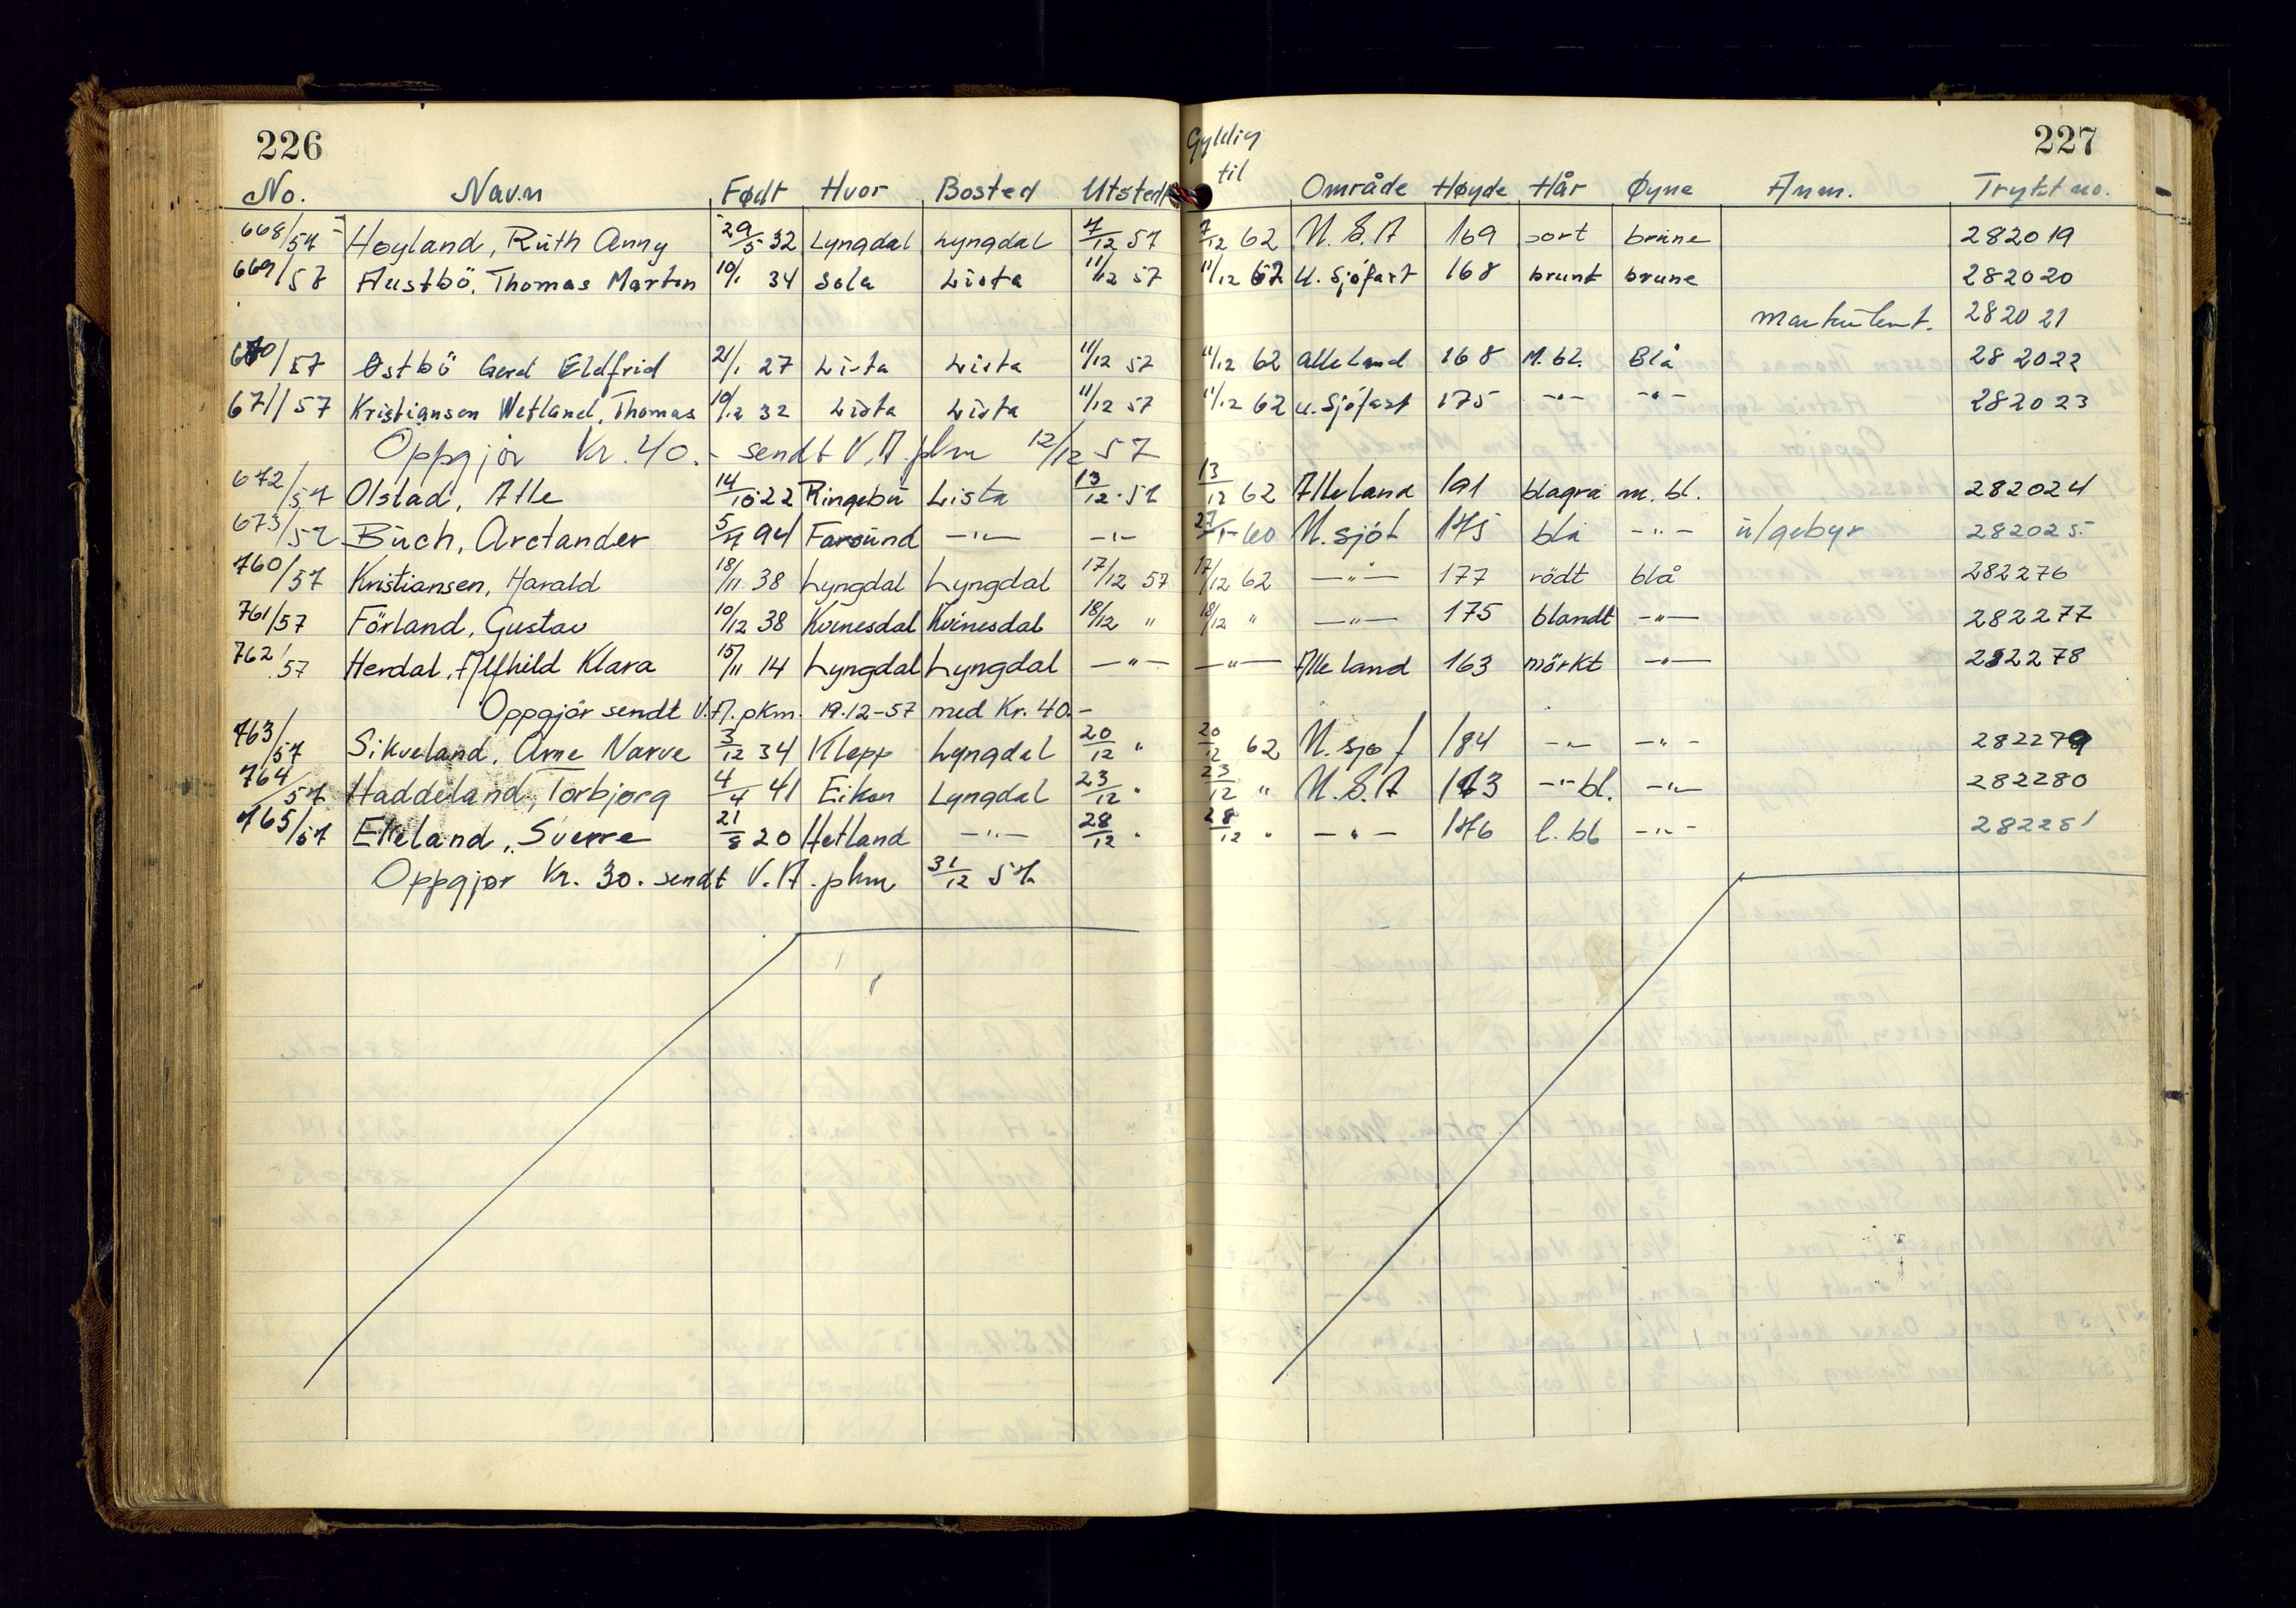 226
Gyldig
til
227
No. Navn Født Hvor Bosted Utstedt Område Høyde Hår Øyne Anm. Trykt no.
668/57 Høyland, Ruth Anny 29/5 32 Lyngdal Lyngdal 7/12 57 7/12 62 U.S.A 169 sort brune 282019
669/57 Austbö, Thomas Marton 10/1 34 Sola Lista 11/12 57 11/12 62 u. Sjöfart 168 brunt brune 282020
282021
670/57 Østbö Gerd Eldfrid 21/1 27 Lista Lista 11/12 57 11/12 62 alle land 168 M.bl. Blå 282022
671/57 Kristiansen Wetland, Thomas 10/12 32 Lista Lista 11/12 57 11/12 62 u. Sjöfart 175 -"- -"- 282023
Oppgjör Kr. 40.- sendt V.A. pkm 12/12 57
672/57 Olstad, Atle 14/10 22 Ringebu Lista 13/12 57 13/12 62 Alle land 191 blagrå m. bl. 282024
673/57 Buch, Arctander 94 Farsund -"- -"- 60 U. sjöf 175 blå -"- u/gebyr 282025
760/57 Kristiansen, Harald 18/11 38 Lyngdal Lyngdal 17/12 57 17/12 62 -"- 177 rödt blå 282276
761/57 Förland, Gustav 10/12 38 Kvinesdal Kvinesdal 18/12 " 18/12 " -"- 175 blandt -"- 282277
762/57 Herdal, Alfhild Klara 15/11 14 Lyngdal Lyngdal -"- -"- Alle land 163 mörkt -"- 282278
Oppgjör sendt V.A. pkm. 19.12-57 med Kr. 40.-
763/57 Sikveland, Arne Narve 3/12 34 Klepp Lyngdal 20/12 " 20/12 62 U. sjøf 184 -"- -"- 282279
764/57 Haddeland, Torbjørg 4/4 41 Eiken Lyngdal 23/12 " 23/12 " U.S.A 173 -"- bl. -"- 282280
765/57 Eikeland, Sverre 21/8 20 Hetland -"- 28/12 " 28/12 " -"- 176 l. bl -"- 282281
Oppgjør Kr. 30. sendt V.A. pkm 31/12 57